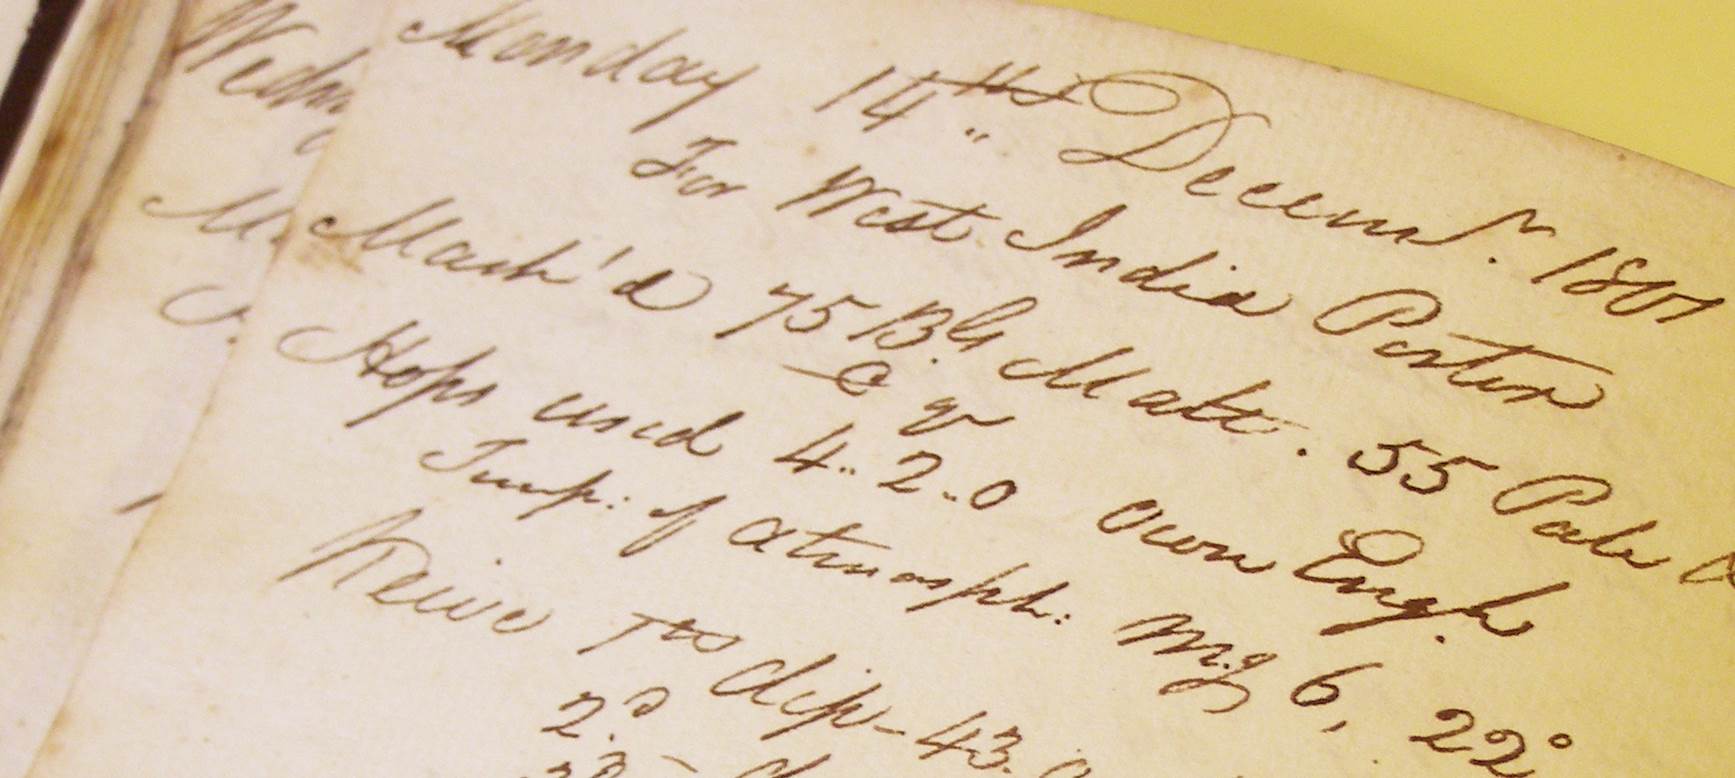 Wedn
Monday 14th " Decemr. 1801
For West India Porter
M. Mash'd 75 Bls. Malt. 55 Pale
C q
Hops used 4.. 2.. 0 own Engh.
Temp: of atmosph: Mg 6, 22°
Keive 1st dip - 43.
2d. -